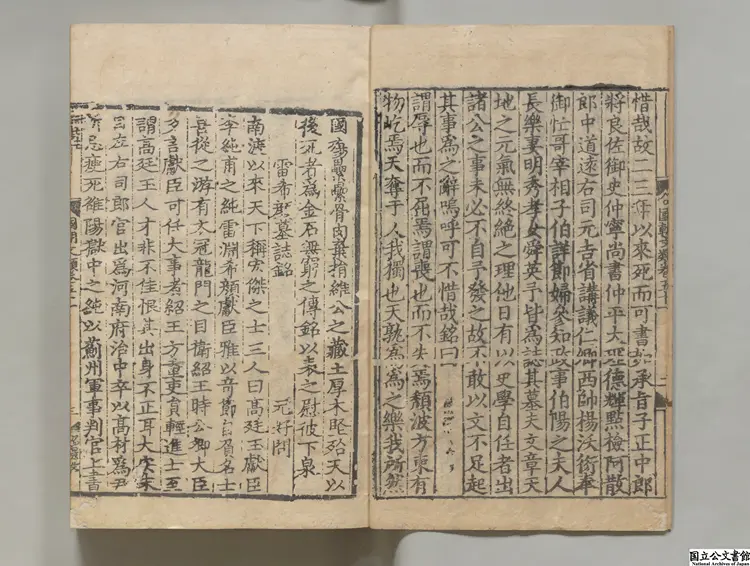 惜哉故二三年以來死而可書如承旨子正中郎
將良佐御史仲寧尚書仲平大理德輝點檢阿散
郎中道遠右司元吉省講議仁卿西帥楊沃衍奉
御忙哥宰相子伯詳節婦參知政事伯陽之夫人
長樂妻明秀孝女舜英予皆爲誌其墓夫文章天
地之元氣無終絶之理他日有以史學自任者出
諸公之事未必不自予發之故不敢以文不足起
其事爲之辭嗚呼可不惜哉銘曰
謂辱也而不死焉謂喪也而不失焉頹波方東有
物屹焉天奪于人我獨也天孰爲爲之樂我所然
國殤纍纍骨肉棄捐維公之藏土厚木堅殆天以
後死者爲金石無窮之傳銘以表之慰彼下泉
雷希顏墓誌銘 元好問
南渡以來天下稱宏傑之士三人曰高廷玉獻臣
李純甫之純雷淵希顏獻臣雅以奇節自負名士
喜從之游有衣冠龍門之目衛紹王時公卿大臣
多言獻臣可任大事者紹王方重吏員輕進士至
謂高廷玉人才非不佳恨其出身不正耳大安末
自左右司郎官出爲河南府治中卒以高材爲尹
所忌瘐死雒陽獄中之純以薊州軍事判官上書
国立公文書館
National Archives of Japan